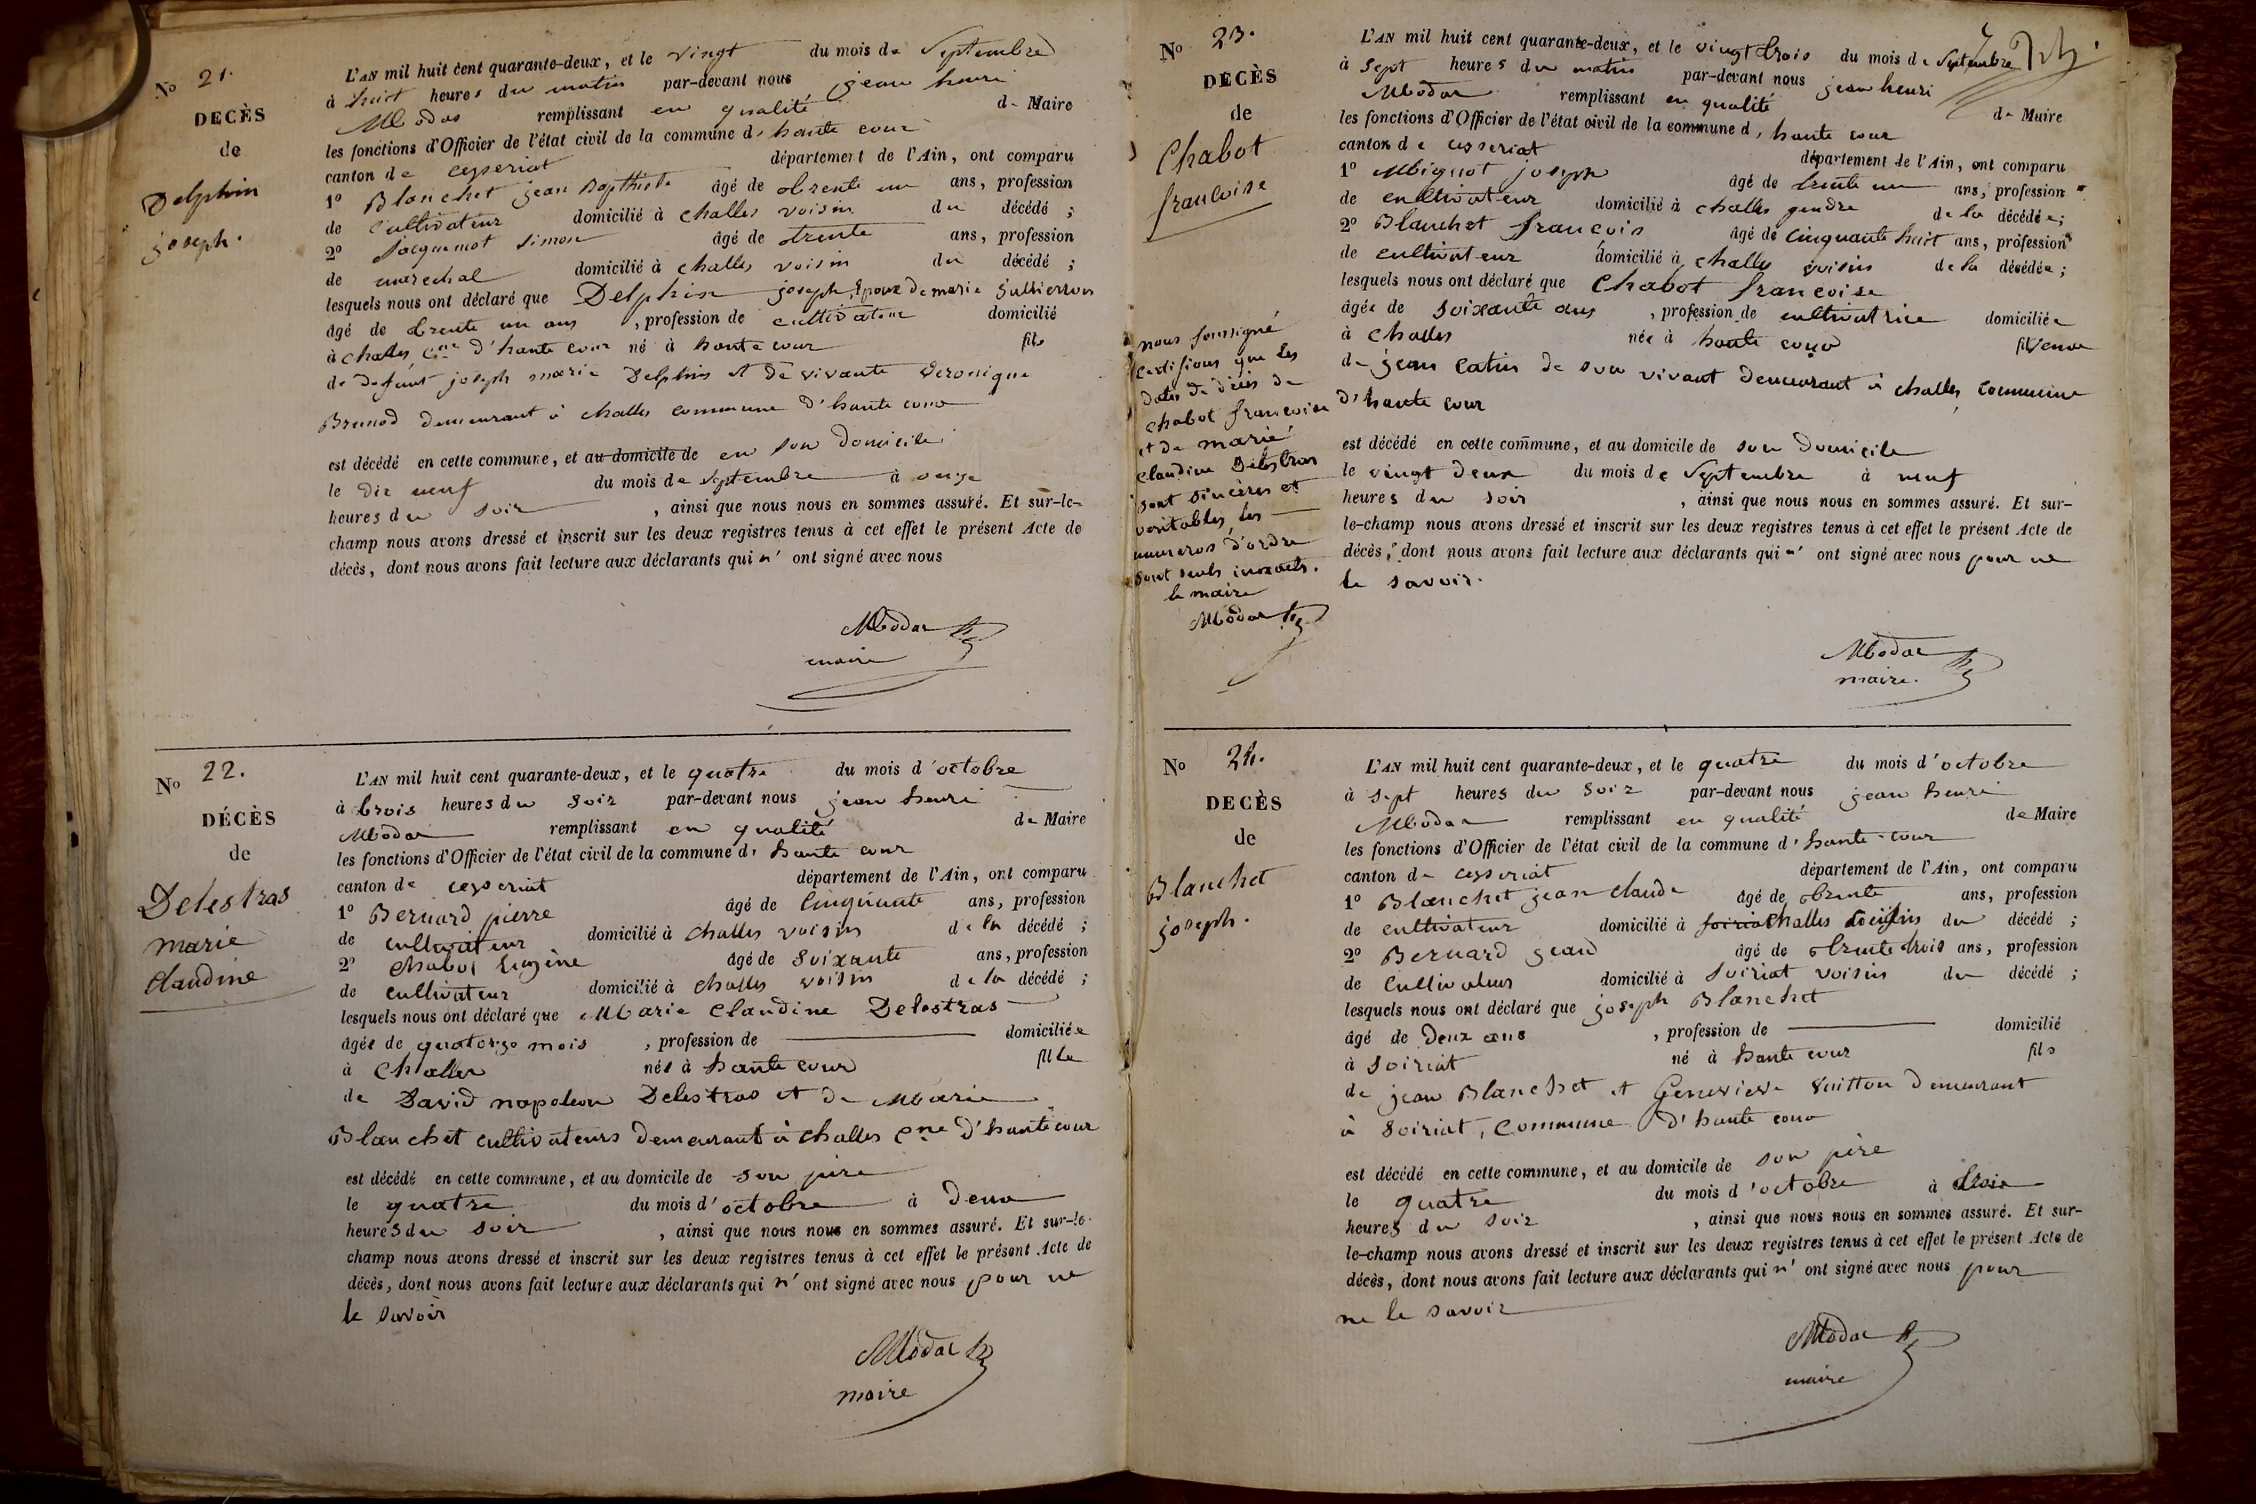 No 21.
DÉCÈS
de
Delphin
joseph.
L'AN mil huit cent quarante-deux, et le vingt du mois de Septembre
à huit heures du matin par-devant nous jean henri
Modas remplissant en qualité de Maire
les fonctions d'Officier de l'état civil de la commune d' haute cour
canton de ceyseriat département de l'Ain, ont comparu
1º Blanchet jean Bapthiste âgé de trente un ans, profession
de Cultivateur domicilié à challes voisin du décédé ;
2º Jacquemot Simon âgé de trente ans, profession
de marechal domicilié à challes voisin du décédé ;
lesquels nous ont déclaré que Delphin joseph, Epoux de marie
âgé de trente un ans , profession de cultivateur domicilié
à challes cne d'haute cour né à haute cour fils
de defunt joseph marie Delphin et de vivante Veronique
Brunod demeurant à challes commune d'haute cour
est décédé en cette commune, et au domicile de en son domicile
le dix neuf du mois de septembre à onze
heures du soir , ainsi que nous nous en sommes assuré. Et sur-le-
champ nous avons dressé et inscrit sur les deux registres tenus à cet effet le présent Acte de
décès, dont nous avons fait lecture aux déclarants qui n' ont signé avec nous
Modas
maire
No 22.
DÉCÈS
de
Delestras
marie
claudine
L'AN mil huit cent quarante-deux, et le quatre du mois d'octobre
à trois heures du soir par-devant nous jean henri
Modas remplissant en qualité de Maire
les fonctions d'Officier de l'état civil de la commune d' haute cour
canton de ceyseriat département de l'Ain, ont comparu
1º Bernard pierre âgé de cinquante ans, profession
de cultivateur domicilié à challes voisin de la décédé ;
2º chabot Eugène âgé de soixante ans, profession
de cultivateur domicilié à challes voisin de la décédé ;
lesquels nous ont déclaré que Marie Claudine Delestras
âgée de quatorze mois , profession de domiciliée
à challes née à haute cour fille
de David napoleon Delestras et de Marie
Blanchet cultivateurs demeurant à challes cne d'haute cour
est décédé en cette commune, et au domicile de son père
le quatre du mois d'octobre à deux
heures du soir , ainsi que nous nous en sommes assuré. Et sur-le-
champ nous avons dressé et inscrit sur les deux registres tenus à cet effet le présent Acte de
décès, dont nous avons fait lecture aux déclarants qui n' ont signé avec nous pour ne
le savoir
Modas
maire
No 23.
DÉCÈS
de
Chabot
francoise
nous soussigné
certifions que les
dates de décès de
chabot francoise
et de marie
claudine Delestras
sont sincères et
veritables, les
numeros d'ordre
sont seuls inexacts.
le maire
Modas
L'AN mil huit cent quarante-deux, et le vingt trois du mois de Septembre
à sept heures du matin par-devant nous jean henri
Modas remplissant en qualité de Maire
les fonctions d'Officier de l'état civil de la commune d' haute cour
canton de ceyseriat département de l'Ain, ont comparu
1º Mignot joseph âgé de trente un ans, profession
de cultivateur domicilié à challes gendre de la décédée ;
2º Blanchet francois âgé de cinquante huit ans, profession
de cultivateur domicilié à challes voisin de la décédée ;
lesquels nous ont déclaré que Chabot francoise
âgée de soixante ans , profession de cultivatrice domiciliée
à challes née à haute cour veuve
de jean catin de son vivant demeurant à challes, commune
d'haute cour
est décédé en cette commune, et au domicile de son domicile
le vingt deux du mois de Septembre à neuf
heures du soir , ainsi que nous nous en sommes assuré. Et sur-
le-champ nous avons dressé et inscrit sur les deux registres tenus à cet effet le présent Acte de
décès, dont nous avons fait lecture aux déclarants qui n' ont signé avec nous pour ne
le savoir.
Modas
maire.
No 24.
DECÈS
de
Blanchet
joseph.
L'AN mil huit cent quarante-deux, et le quatre du mois d'octobre
à sept heures du soir par-devant nous jean henri
Modas remplissant en qualité de Maire
les fonctions d'Officier de l'état civil de la commune d' haute-cour
canton de ceyseriat département de l'Ain, ont comparu
1º Blanchet jean claude âgé de trente ans, profession
de cultivateur domicilié à challes voisin du décédé ;
2º Bernard jean âgé de trente trois ans, profession
de cultivateur domicilié à soiriat voisin du décédé ;
lesquels nous ont déclaré que joseph Blanchet
âgé de deux ans , profession de domicilié
à soiriat né à haute cour fils
de jean Blanchet et Genevieve Vuitton demeurant
à soiriat, commune d'haute cour
est décédé en cette commune, et au domicile de son père
le quatre du mois d'octobre à trois
heures du soir , ainsi que nous nous en sommes assuré. Et sur-
le-champ nous avons dressé et inscrit sur les deux registres tenus à cet effet le présent Acte de
décès, dont nous avons fait lecture aux déclarants qui n' ont signé avec nous pour
ne le savoir
Modas
maire